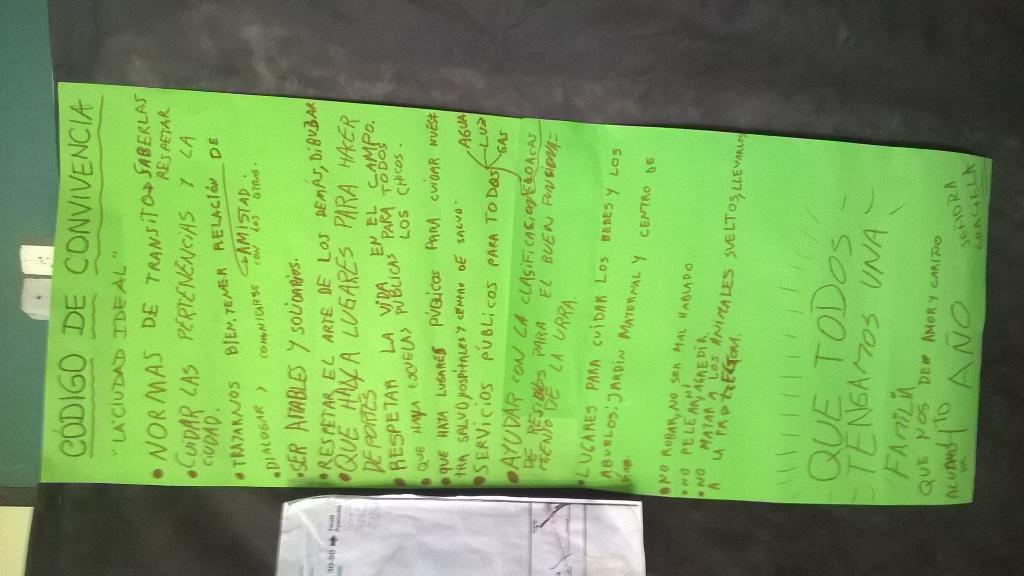 CÓDIGO DE CONVIVENCIA
"LA CIUDAD IDEAL"
• NORMAS DE TRANSITO → SABERLAS RESPETAR
• CUIDAR LAS PERTENENCIAS Y LA
CIUDAD.
• TRATARNOS BIEN, TENER RELACIÓN DE
AMISTAD.
• DIALOGAR Y COMUNICARSE CON LOS OTROS.
• SER AMABLES Y SOLIDARIOS.
• RESPETAR EL ARTE DE LOS DEMÁS, DIBUJAR
• QUE HAYA LUGARES PARA HACER
DEPORTES
RESPETAR LA VIDA EN EL CAMPO.
• QUE HAYA ESCUELAS PÚBLICAS PARA TODOS LOS CHICOS.
• QUE HAYA LUGARES PUBLICOS PARA CUIDAR NUES-
TRA SALUD, HOSPITALES Y CENTRO DE SALUD.
• SERVICIOS PUBLICOS PARA TODOS AGUA LUZ GAS
• AYUDAR CON LA CLASIFICACION
DE PARA EL BUEN
DE LA URRA.
• LUGARES PARA CUIDAR LOS BEBES Y LOS
ABUELOS, JARDIN MATERNAL Y CENTRO DE
DIA.
• NO ROBAR, NO SEA MAL HABLADO
• NO PELEAR, NI AGREDIR
• NO MATAR A LOS ANIMALES SUELTOS, LLEVARLOS
A LA
QUE TODOS
TENGAMOS UNA
FAMILIA
QUE NOS DEN AMOR Y CARIÑO
ALUMNOS DE 4TO AÑO SEÑORA GRACIELA